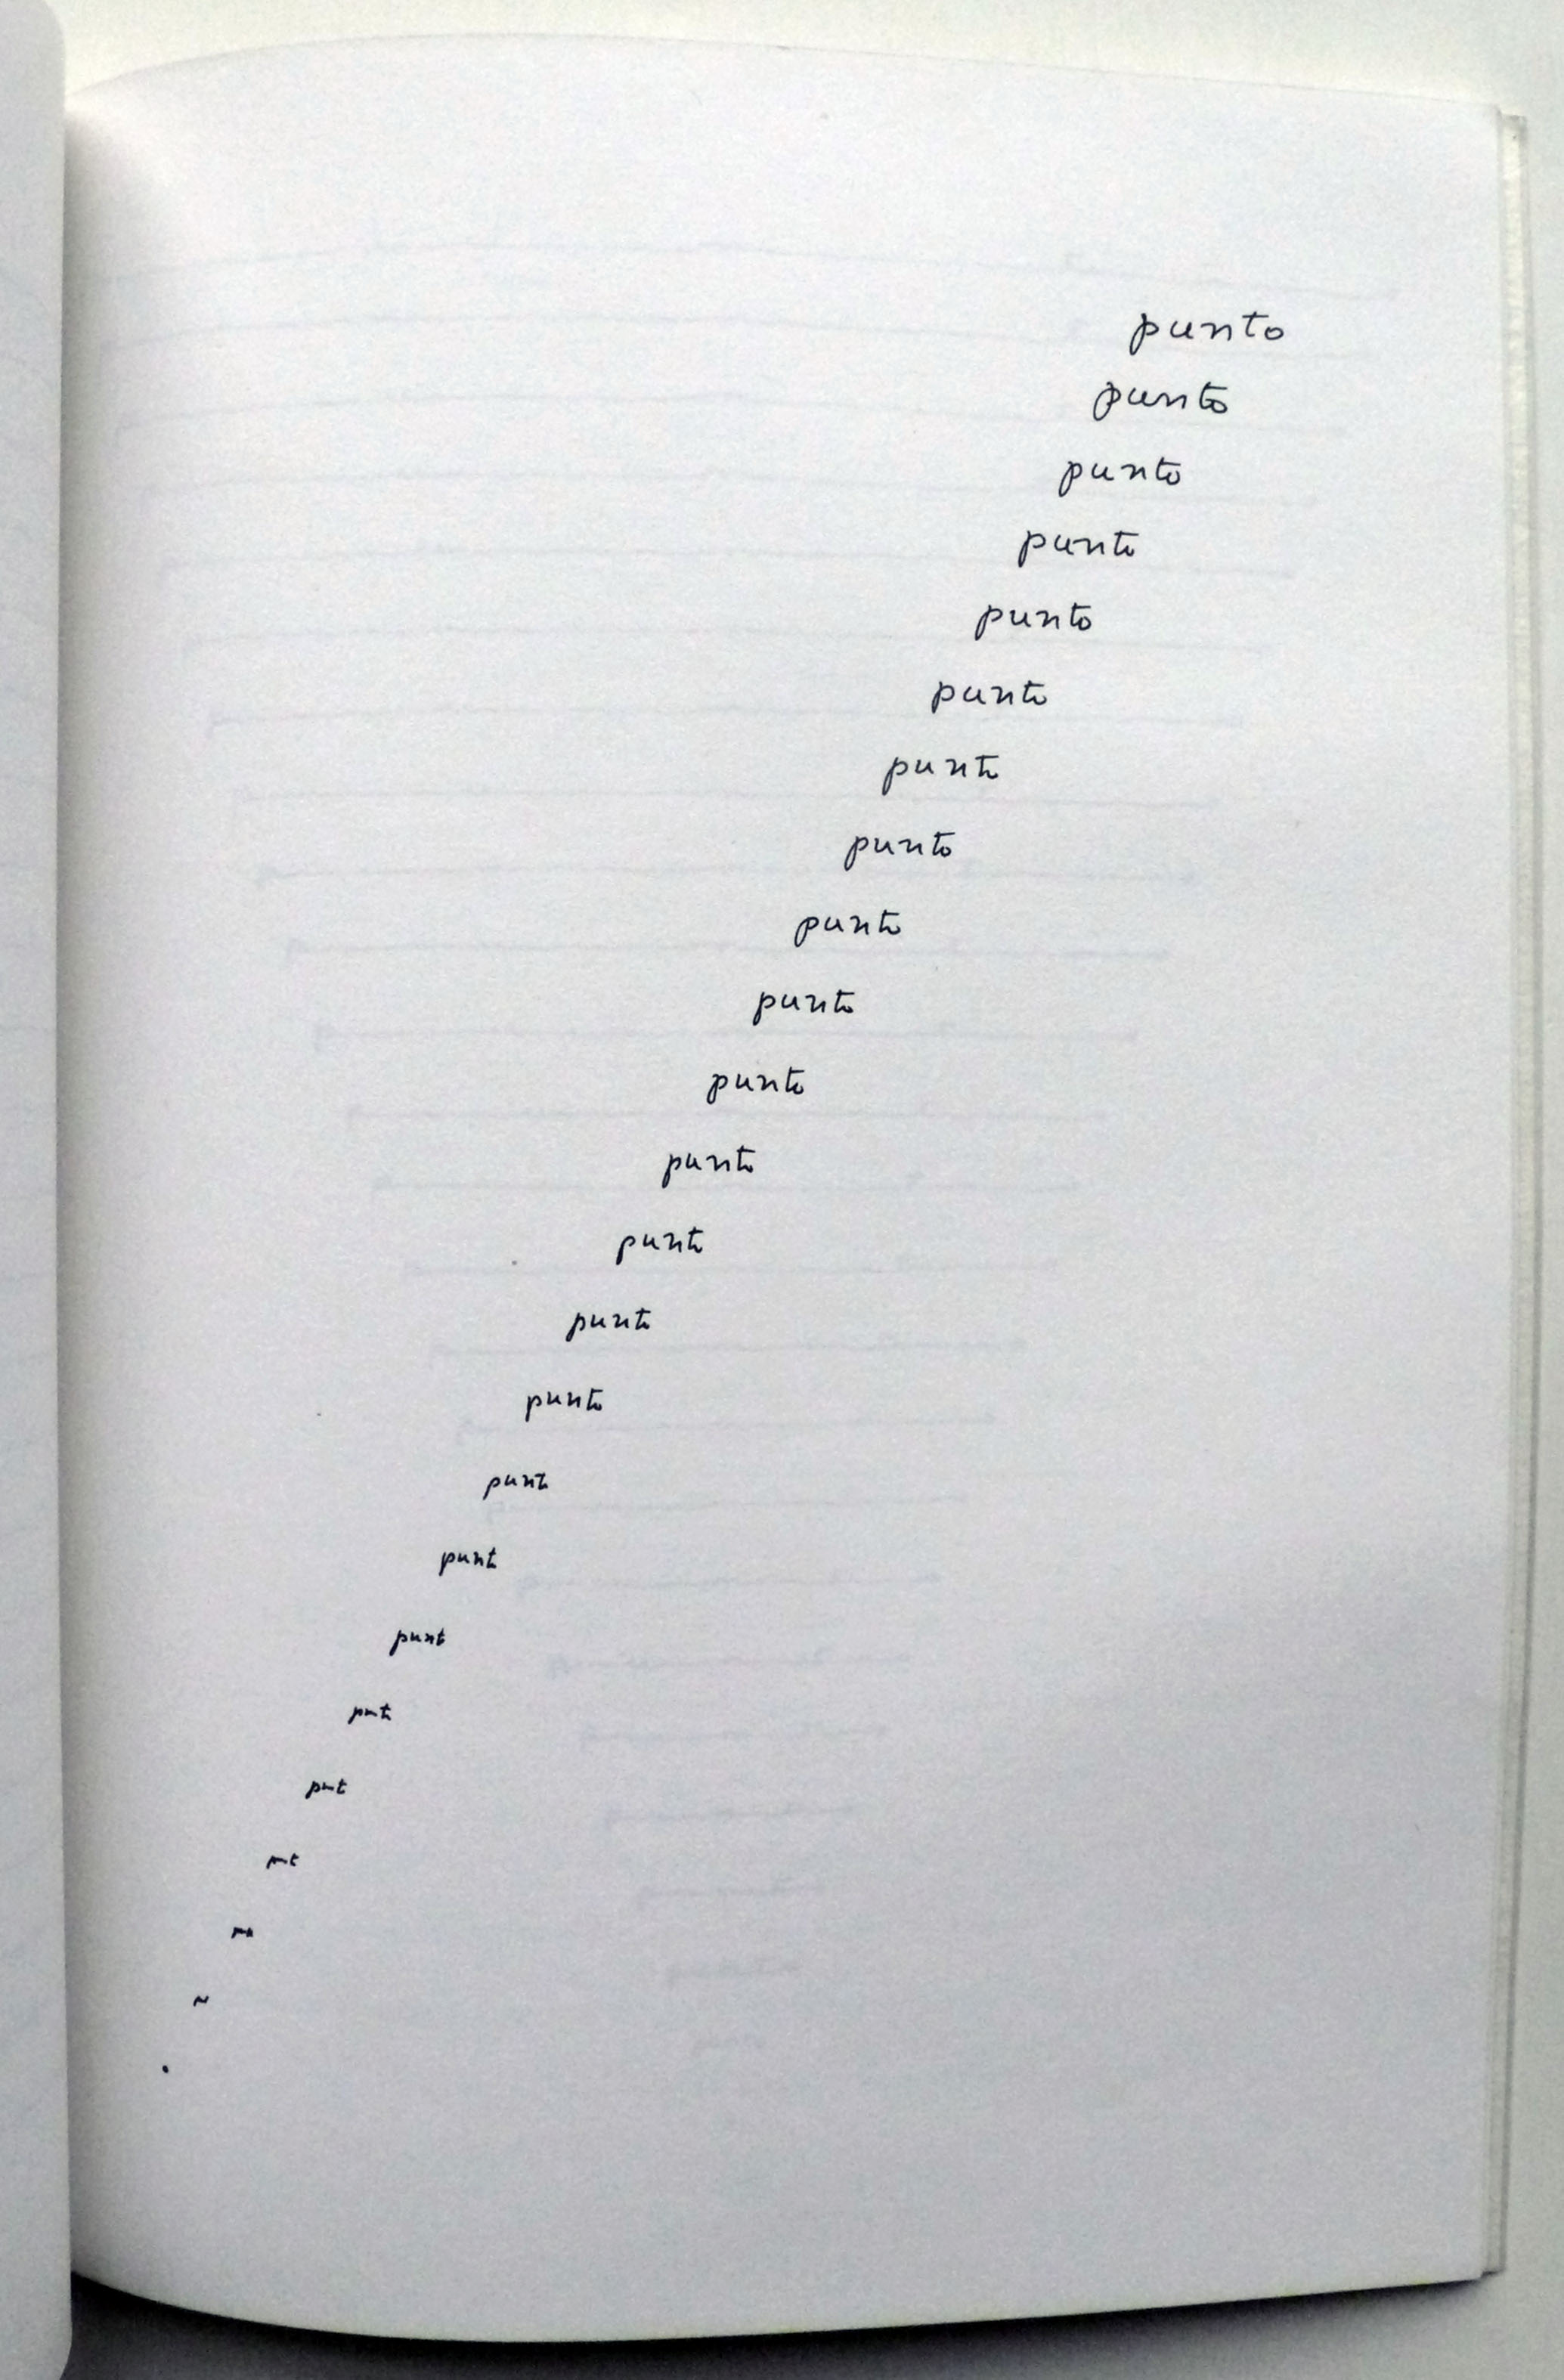 punto
punto
punto
punto
punto
punto
punto
punto
punto
punto
punto
punto
punto
punto
punto
punto
punt
punt
punt
punt
.